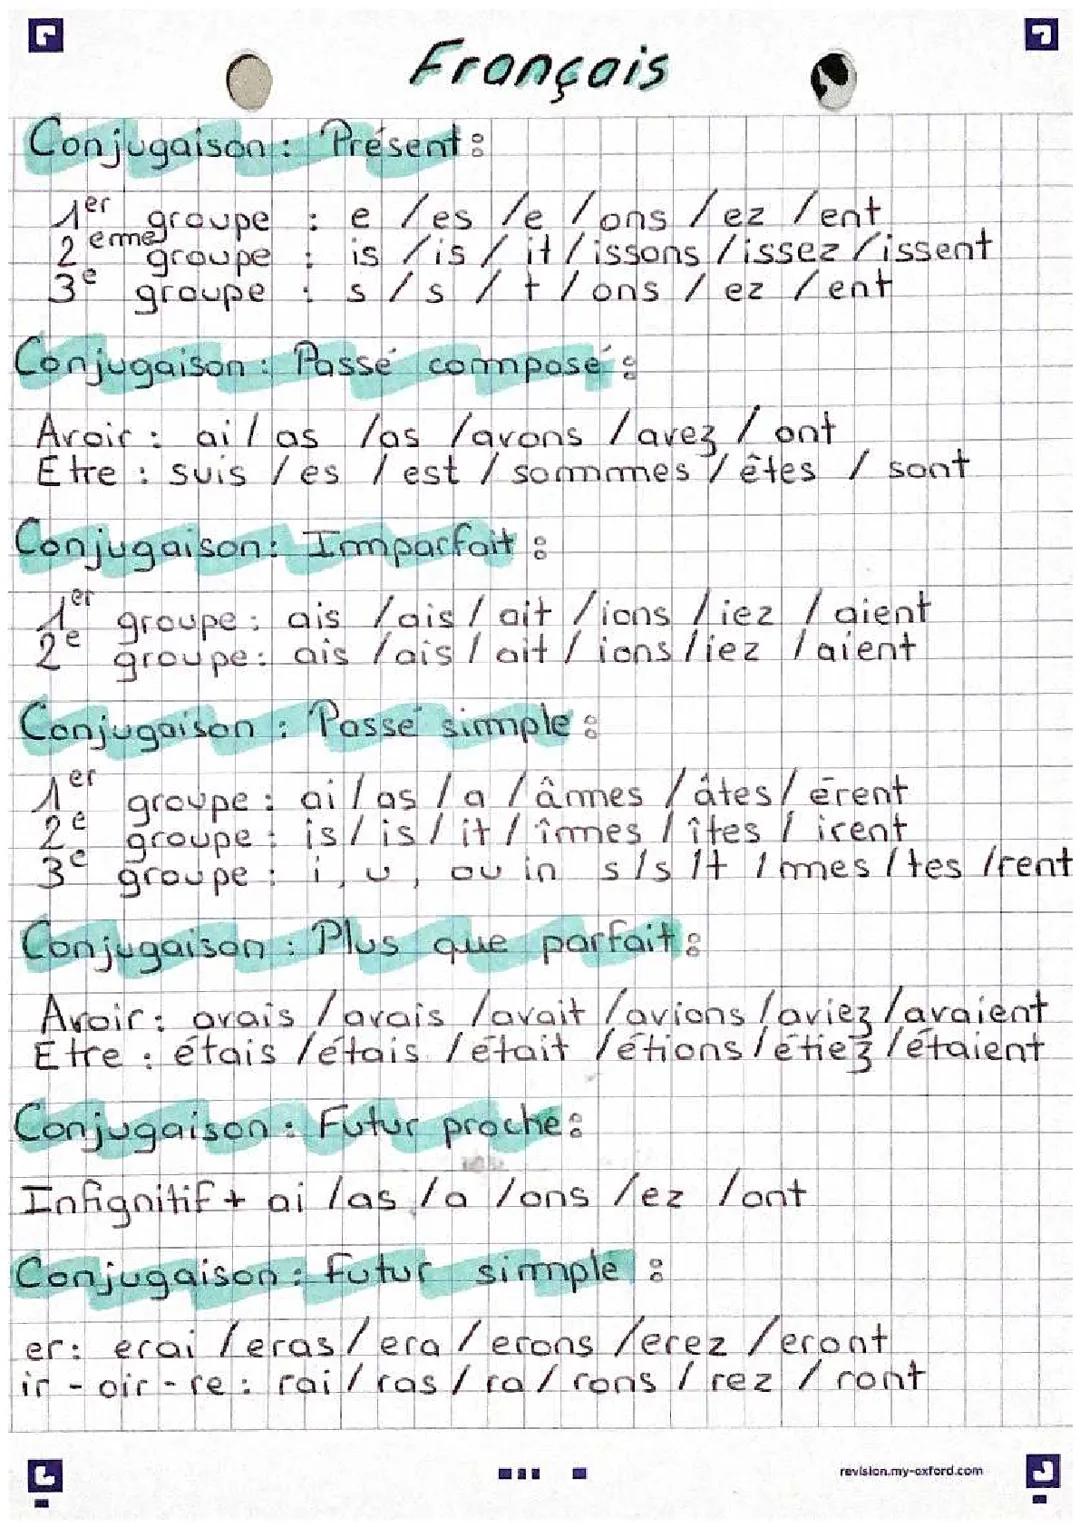 Français
Conjugaison : Présent :
1er groupe : e /es /e /ons /ez /ent
2ème groupe : is /is / it / issons /issez /issent
3e groupe : s / s / t / ons / ez / ent
Conjugaison : Passé composé :
Avoir : ai / as /as /avons /avez / ont
Etre : suis / es / est / sommmes / êtes / sont
Conjugaison : Imparfait :
1er groupe : ais /ais / ait /ions / iez / aient
2e groupe : ais /ais / ait / ions /iez /aient
Conjugaison : Passé simple :
1er groupe : ai / as / a / âmes / âtes / èrent
2e groupe : is / is / it / îmes / îtes / irent
3e groupe : i, u, ou in s/s /t /mes /tes /rent
Conjugaison : Plus que parfait :
Avoir : avais /avais /avait /avions /aviez /avaient
Etre : étais /étais /était /étions /étiez /étaient
Conjugaison : Futur proche :
Infignitif + ai /as /a /ons /ez /ont
Conjugaison : futur simple :
er : erai /eras / era / erons /erez /eront
ir - oir - re : rai / ras / ra / rons / rez / ront
revision.my-oxford.com